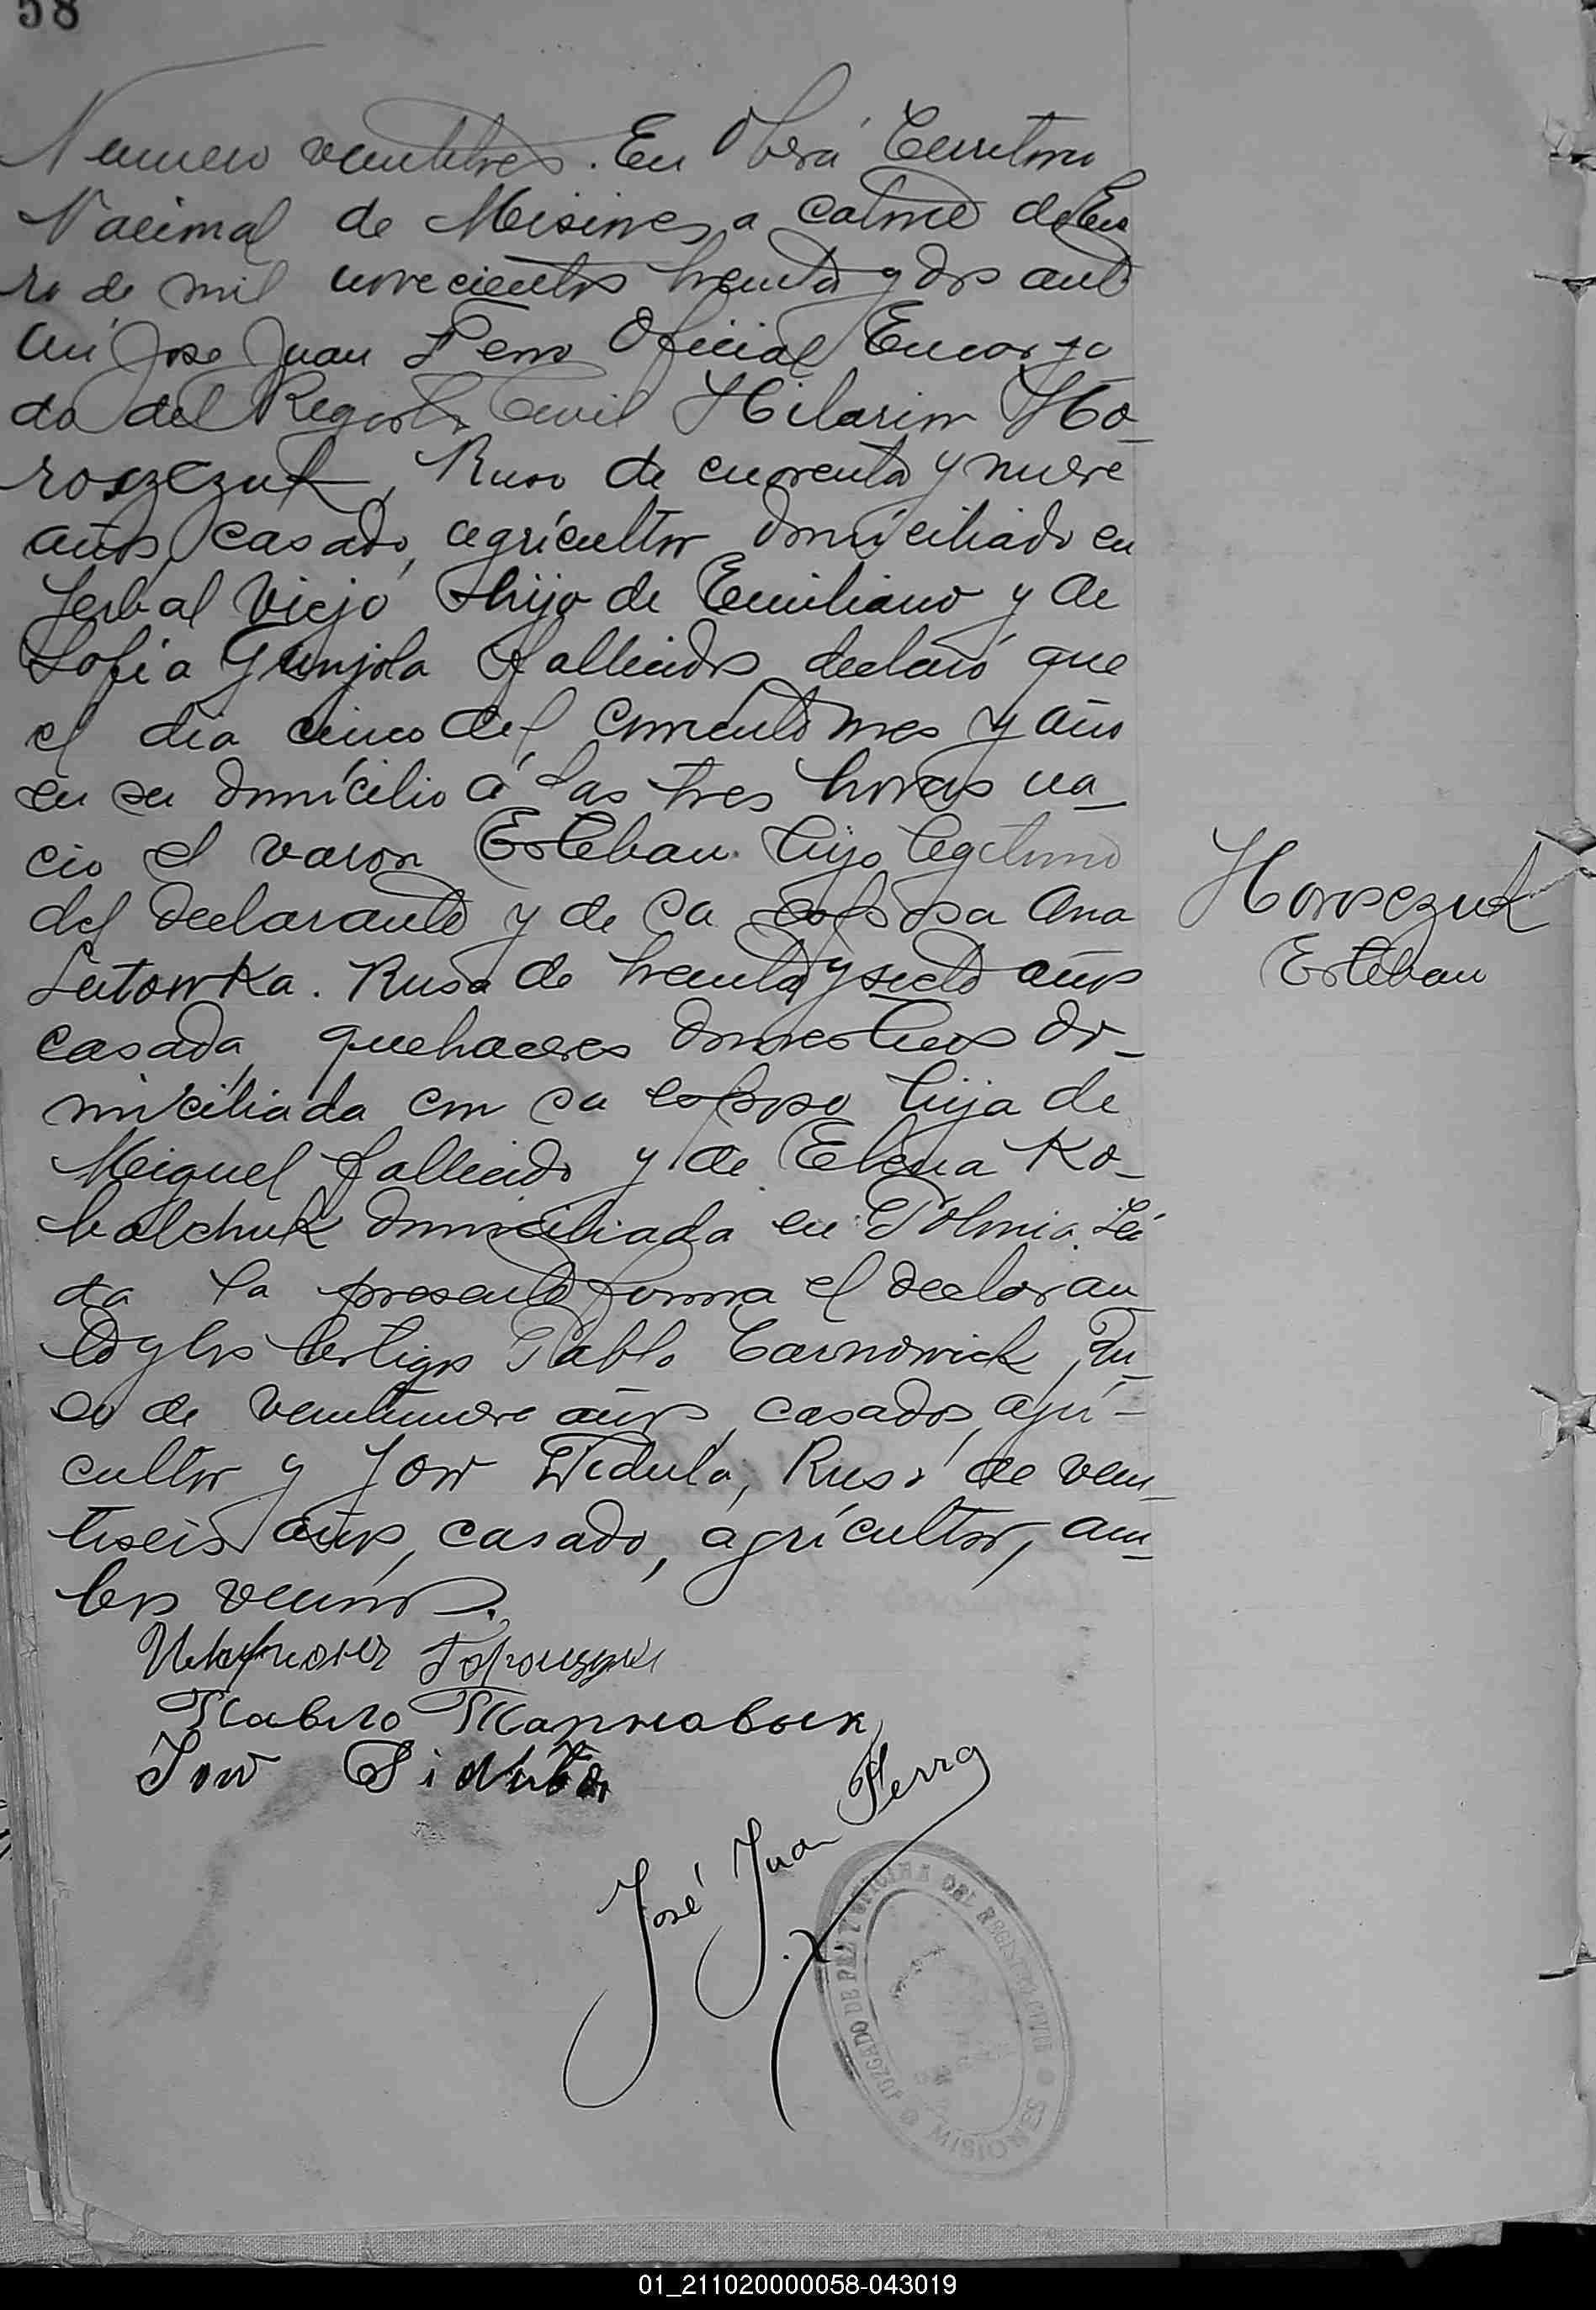 58
Numero veintitres. En Oberá Territorio
Nacional de Misiones a catorce de Ene
ro de mil novecientos treinta y dos ante
mi Jose Juan Ferro Oficial Encarga
do del Registro Civil Hilarion Ho-
roszczuk, Ruso de cuarenta y nueve
años, casado, agricultor domiciliado en
Yerbal Viejo hijo de Emiliano y de
Sofia Gunjola fallecidos declaró que
el dia cinco del corriente mes y año
en su domicilio á las tres horas na-
cio el varon Esteban hijo legitimo
del declarante y de su esposa Ana
Horosczuk
Esteban
Lutowka. Rusa de treinta y siete años
casada, quehaceres domesticos do-
miciliada con su esposo hija de
Miguel fallecido y de Elena Ko-
balchuk domiciliada en Polonia. Lei
da la presente firma el declaran
te y los testigos Pablo Tarnowick, Ru-
so de veintinueve años, casado, agri-
cultor y Jow Didula, Ruso de vein-
tiseis años, casado, agricultor, am-
bos vecinos.
Павло Тарнавык
Jow
José Juan Ferro
JUZGADO DE PAZ Y OFICINA DEL REGISTRO CIVIL
MISIONES
01_211020000058-043019